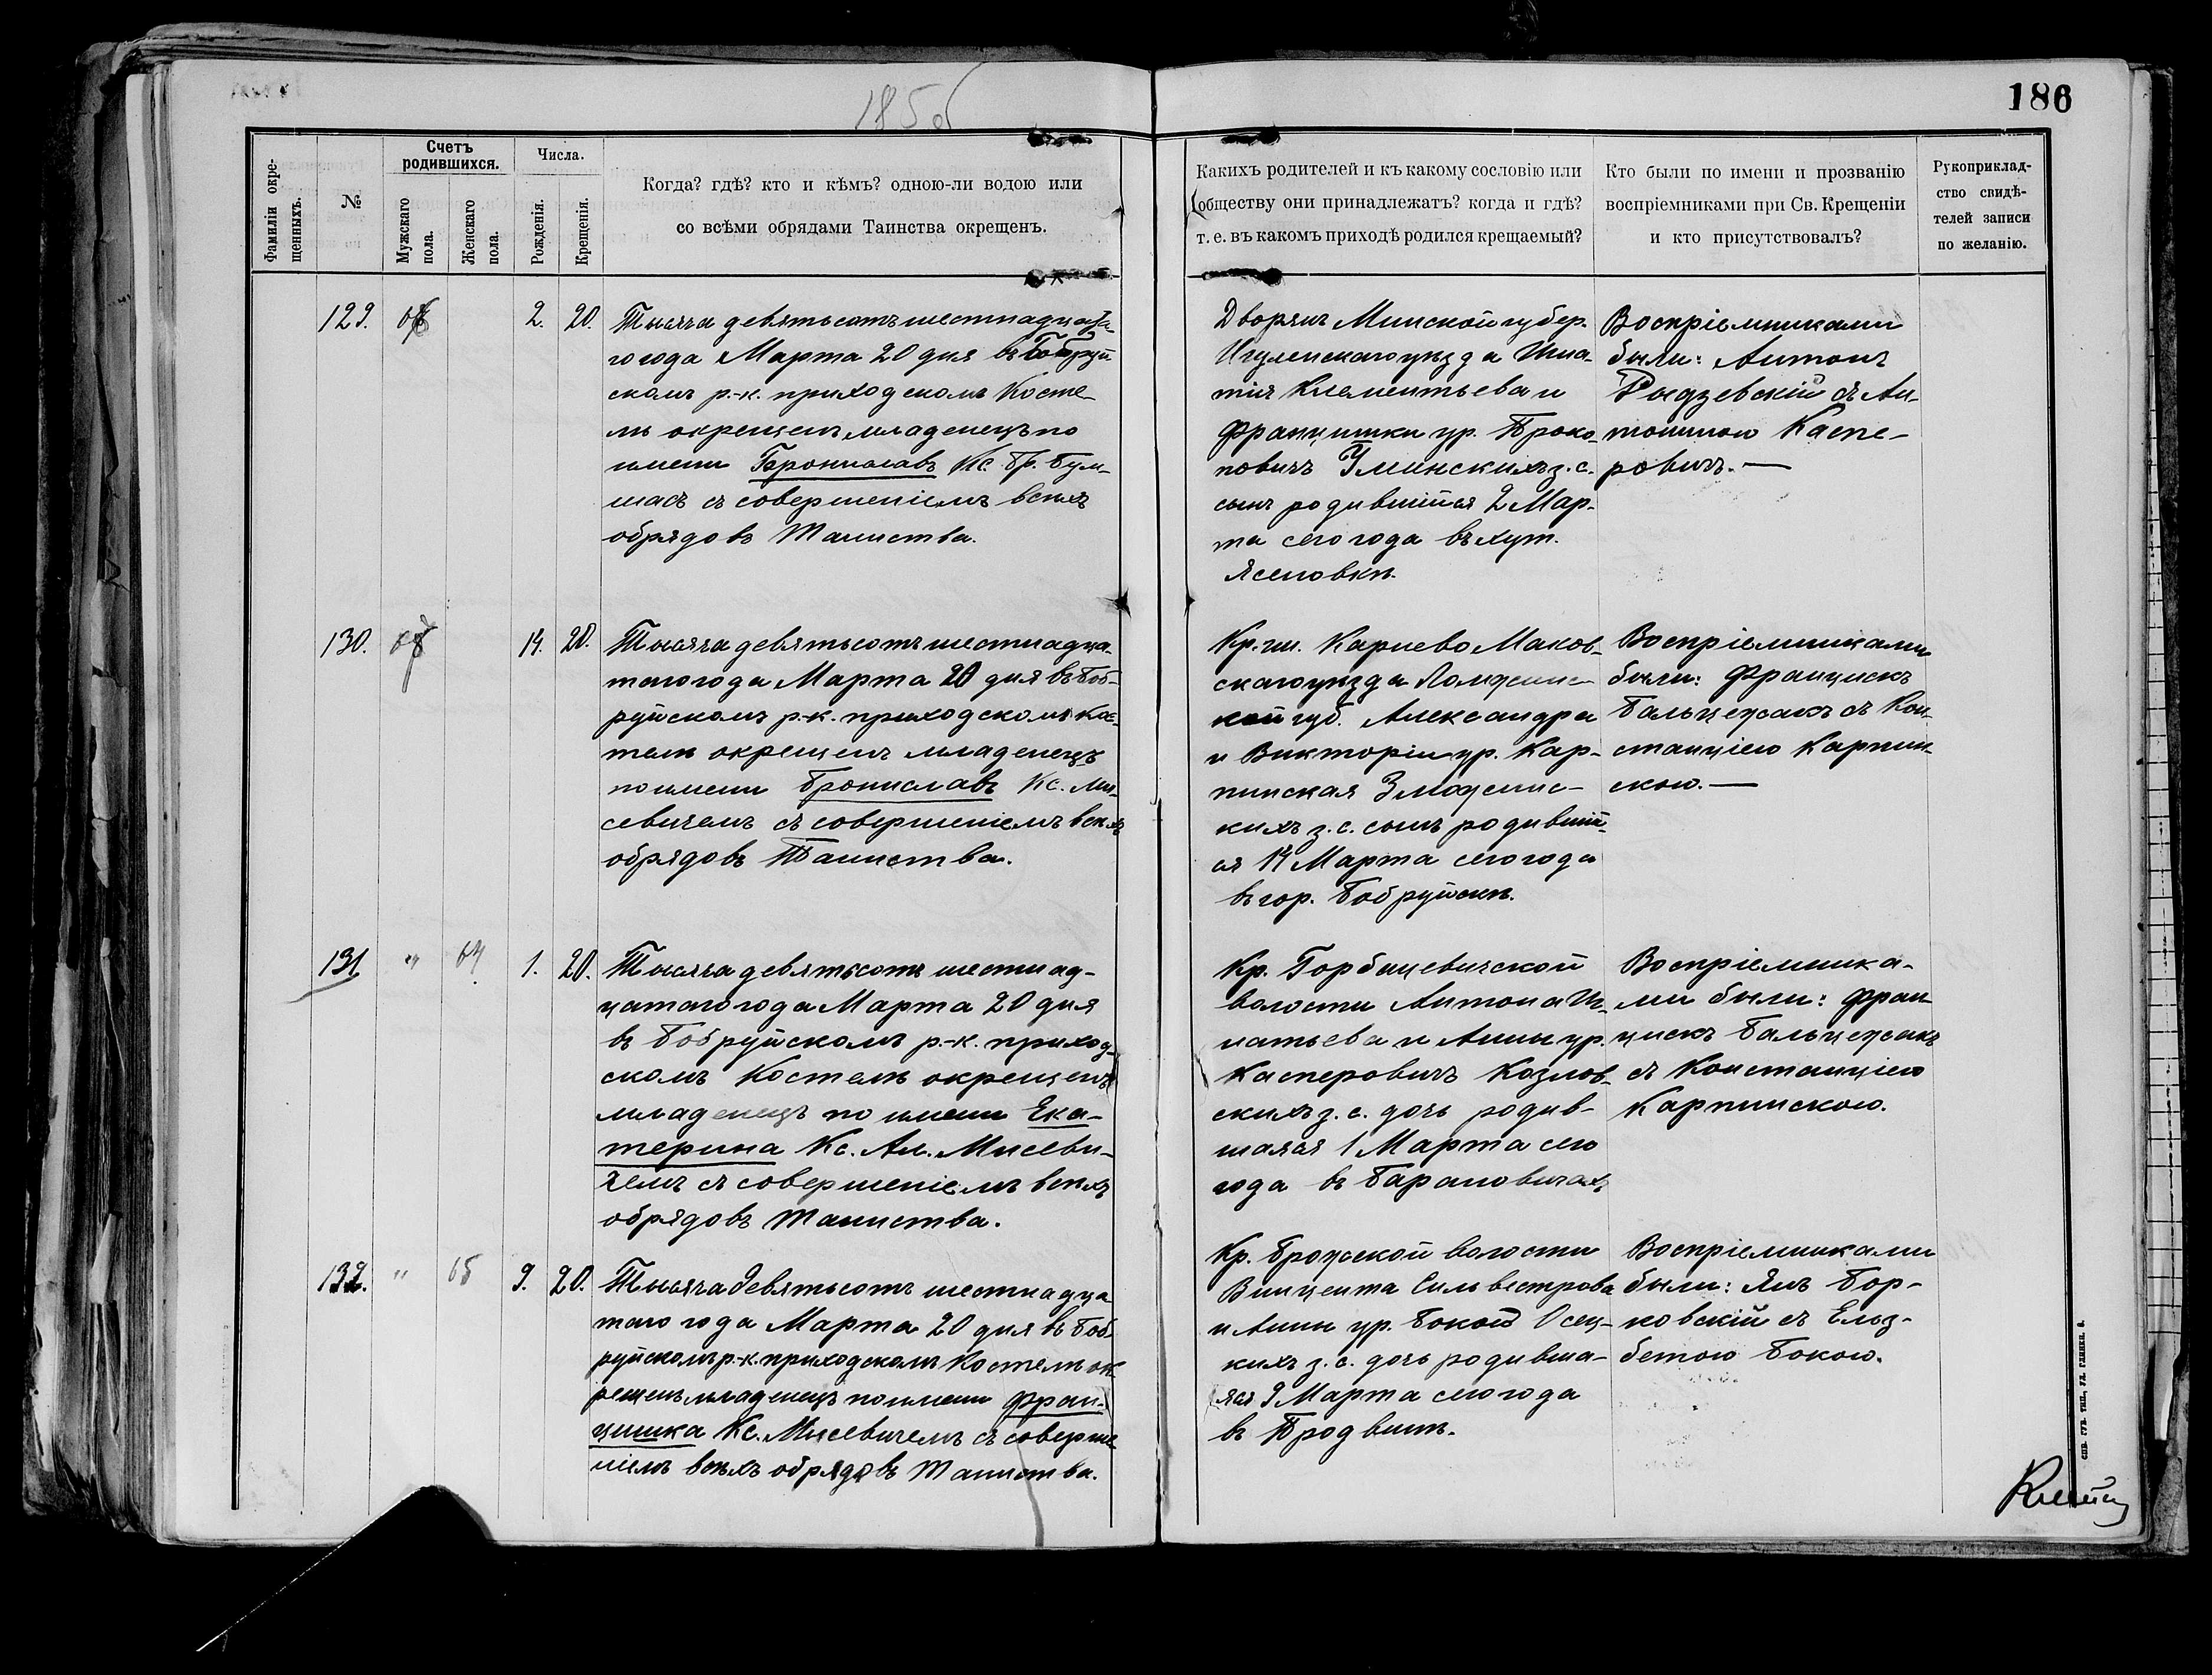 185об
186
Фамиліи окре-
щенныхъ.
№
Счетъ
родившихся.
Мужскаго
пола.
Женскаго
пола.
Числа.
Рожденія.
Крещенія.
Когда? гдѣ? кто и кѣмъ? одною-ли водою или
со всѣми обрядами Таинства окрещенъ.
Какихъ родителей и къ какому сословію или
обществу они принадлежатъ? когда и гдѣ?
т. е. въ какомъ приходѣ родился крещаемый?
Кто были по имени и прозванію
воспріемниками при Св. Крещеніи
и кто присутствовалъ?
Рукоприклад-
ство свидѣ-
телей записи
по желанію.
129.
2. 20.
Тысяча девятьсотъ шестнадца-
го года Марта 20 дня въ Бобруй
скомъ р.-к. приходскомъ Косте-
лѣ окрещенъ младенецъ по
имени Брониславъ Кс. Бр. Бум-
шасъ съ совершеніемъ всѣхъ
обрядовъ Таинства.
Дворянъ Минской губер.
Игуменскаго уѣзда Игна-
тія Клементьева и
Францишки ур. Проко-
повичъ Уминскихъ з. с.
сынъ родившійся 2 Мар-
та сего года въ хут.
Ясеновкѣ.
Воспріемниками
были: Антонъ
Рыдзевскій съ Ан-
тониною Каспе-
ровичъ.—
130.
14. 20.
Тысяча девятьсотъ шестнадца-
таго года Марта 20 дня въ Боб-
руйскомъ р.-к. приходскомъ Кос-
телѣ окрещенъ младенецъ
по имени Брониславъ Кс. Ми-
севичемъ съ совершеніемъ всѣхъ
обрядовъ Таинства.
Кр. гм. Карнево Маков-
скаго уѣзда Ломжинс-
кой губ. Александра
и Викторіи ур. Кар-
пинская Зложенс-
кихъ з. с. сынъ родившій-
ся 14 Марта сего года
въ гор. Бобруйскѣ.
Воспріемниками
были: Францискъ
Бальцежакъ съ Кон-
станціею Карпин-
скою.—
131
" 64
1. 20.
Тысяча девятьсотъ шестнад-
цатаго года Марта 20 дня
въ Бобруйскомъ р.-к. приход-
скомъ Костелѣ окрещенъ
младенецъ по имени Ека-
терина Кс. Ал. Мисеви-
чемъ съ совершеніемъ всѣхъ
обрядовъ Таинства.
Кр. Горбацевичской
волости Антона Иг-
натьева и Анны ур.
Касперовичъ Козлов-
скихъ з. с. дочь родив-
шаяся 1 Марта сего
года въ Барановичахъ
Воспріемника-
ми были: Фран-
цискъ Бальцежакъ
съ Констанціею
Карпинскою.
132.
" 65
9. 20.
Тысяча девятьсотъ шестнадца
таго года Марта 20 дня въ Боб-
руйскомъ р.-к. приходскомъ Костелѣ ок-
рещенъ младенецъ по имени Фран-
цишка Кс. Мисевичемъ съ соверше
ніемъ всѣхъ обрядовъ Таинства.
Кр. Брожской волости
Винцента Сильвестрова
и Анны ур. Бокой Осец-
кихъ з. с. дочь родивша-
яся 9 Марта сего года
въ Продвинѣ.
Воспріемниками
были: Янъ Бор-
ковскій съ Ельз-
бетою Бокою.
СПБ. ГУБ. ТИП., УЛ. ГЛИНКИ. 6.